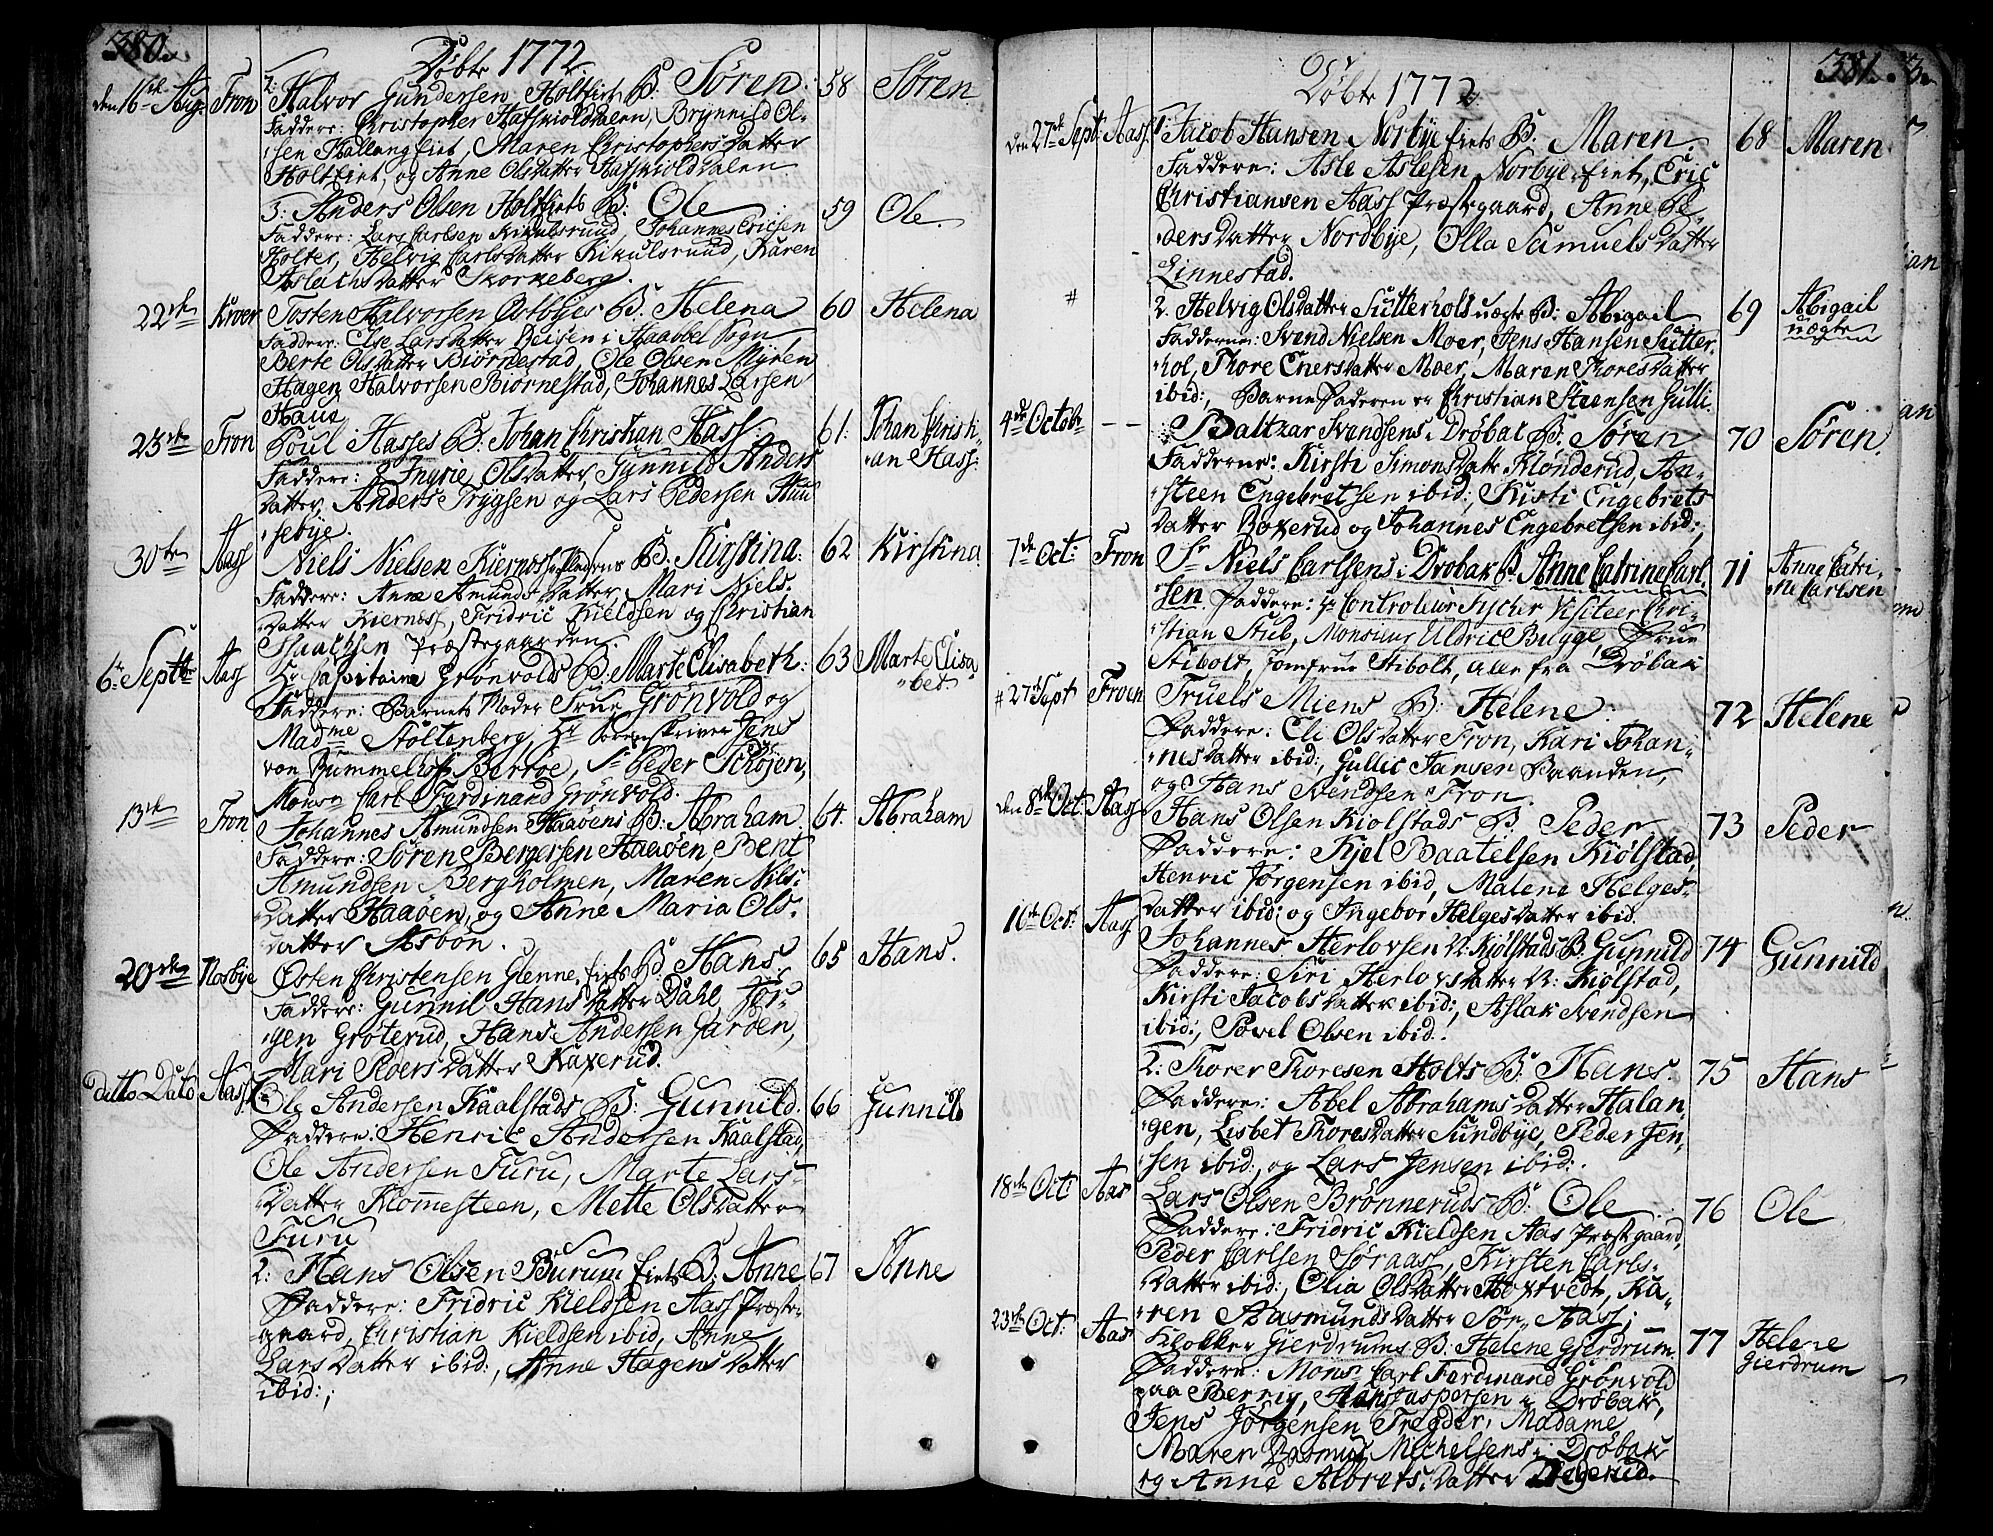 380.
Døbte 1772
den 16de Aug: Fron 2. Halvor Gundersen Holtfiet B: Søren: 58 Søren
Faddere: Christopher Hafskioldvalen, Brynnild Ol-
sen Hallangfiet, Maren Christophers Datter
Holtfiet, og Anne Olsdatter Hafskioldvalen.
3: Anders Olsen Holtfiets B: Ole 59 Ole.
Faddere: Lars Carlsen Kikulsrund, Johannes Ericsen
Holter, Helvig Carlsdatter Kikulsruud, Karen
Aslachsdatter Skorkeberg.
22de Kroer Tosten Halvorsen B: Helena 60 Helena
Faddere: Else Larsdatter i Haabøl Sogn
Berte Olsdatter Biørnestad, Ole Olsen Myren
Hagen Halvorsen Biørnestad, Johannes Larsen
Haue
23de Fron Poul Hasses B: Johan Christian Hass: 61. Johan Christi-
an Hass.
Faddere: Ingrie Olsdatter, Gunnild Anders
datter, Anders Trygsen og Lars Pedersen Huu
sebye.
30te Aass Niels Nielsen Kiernes B: Kirstina: 62 Kirstina.
Faddere: Anne Amunds datter, Mari Niels-
datter Kierness, Fridric Kieldsen og Christian
Præstegaarden.
6te Septbr Aass Hr Capitaine Grønvolds B: Marte Elisabeth: 63 Marte Elisa-
bet.
Faddere: Barnets Moder Frue Grønvold og
Madme Stoltenberg, Hr Sorenskriver Jens
von Bummelhoff Berroe, Sr Peder Schøjen,
Monsr Carl Ferdinand Grønvold.
13de Fron Johannes Amundsen Haaøens B: Abraham 64. Abraham
Faddere: Søren Bergersen Haaøen, Bent
Amundsen Bergholmen, Maren Nils-
datter Haaøen, og Anne Maria Ols-
datter Asbøn.
20de Nosbye Østen Christensen Glenne fiets B: Hans 65 Hans.
Faddere: Gunnil Hans datter Dahl, Jør-
gen Groterud, Hans Andersen Garden,
Mari Peders datter Kaxerud.
ditto Dato Aass Ole Andersen Kaalstads B: Gunnild. 66 Gunnild
Faddere: Henric Andersen Kaalstad,
Ole Andersen Furu, Marte Lars-
datter Kommesteen, Mette Olsdatter
Furu
2: Hans Olsen Burum fiets B: Anne 67 Anne
Faddere: Fridric Kieldsen Aass Præste-
gaard, Christian Kieldsen ibid, Anne
Lars datter ibid:, Anne Hagens datter
ibid:;
381.
Døbte 1772
den 27de Sept: Aass 1. Jacob Hansen Norbye fiets B: Maren. 68 Maren
Faddere: Asle Aslesen Norbye fiet, Eric
Christiansen Aass Præstegaard, Anne Pe-
ders datter Nordbye, Olla Samuels datter
Linnestad.
# 2. Helvig Olsdatter Sutterhols uægte B: Abigail 69 Abigail
uægte
Faddere: Svend Nielsen Moer, Jens Hansen Sutter-
hol, Thore Enersdatter Moer, Maren Thoresdatter
ibid:, Barne Faderen er Christian Steensen Gulli.
4de Octobr -- Baltzar Svendsens i Drøbak B: Søren 70 Søren.
Fadderne: Kirsti Simonsdatter Klonderud, An-
steen Engebretsen ibid:, Kisti Engebrets
datter Boxerud og Johannes Engebretsen ibid:,
7de Oct: Fron Sr Niels Carlsens i Drøbak B: Anne Catrine Carl- 71 Anne Catri-
ne Carlsen
sen. Faddere: Hr Controlleur Fycher, Visiteer Chri-
stian Stub, Monsieur Uldric Bugge, Frue
Stibolt, Jomfrue Stibolt, alle fra Drøbak
# 27de Sept Froen Truels Miens B: Helene: 72 Helene
Faddere: Eli Olsdatter Fron, Kari Johan-
nesdatter ibid:, Gullic Jansen Baanden,
og Hans Svendsen Fron.
den 8de Oct: Aass Hans Olsen Kiølstads B: Peder 73 Peder
Faddere: Kjel Baatelsen Kiølstad
Henric Jørgensen ibid, Malene Helges-
datter ibid: og Ingebor Helgesdatter ibid.
16de Oct: Aass. Johannes Herlovsen N: Kiølstads B: Gunnild 74 Gunnild
Faddere: Siri Herlovsdatter N: Kiølstad,
Kirsti Jacobsdatter ibid:, Aslak Svendsen
ibid:, Povel Olsen ibid:.
2: Thorer Thoresen Holts B: Hans. 75 Hans
Faddere: Abel Abrahams datter Halan-
gen, Lisbet Thores datter Sundbye, Peder Jen-
sen ibid:, og Lars Jensen ibid:.
18de Oct: Aas Lars Olsen Brønneruds B: Ole. 76 Ole
Faddere: Fridric Kieldsen Aas Præstgaard,
Peder Carlsen Søraas, Kirsten Carls-
datter ibid:, Olia Olsdatter Hoxtvedt, Ka-
ren Aasmunds datter Sør, Aass;
23de Oct: Aas Klokker Gierdrums B: Helene Gierdrum 77 Helene
Gierdrum
Faddere: Monsr Carl Ferdinand Grønvold
paa Berrig, Hans Jaspersen i Drøbak,
Jens Jørgensen Tregder, Madame
Maren Rasmus Michelsens i Drøbak
og Anne Albrets-datter